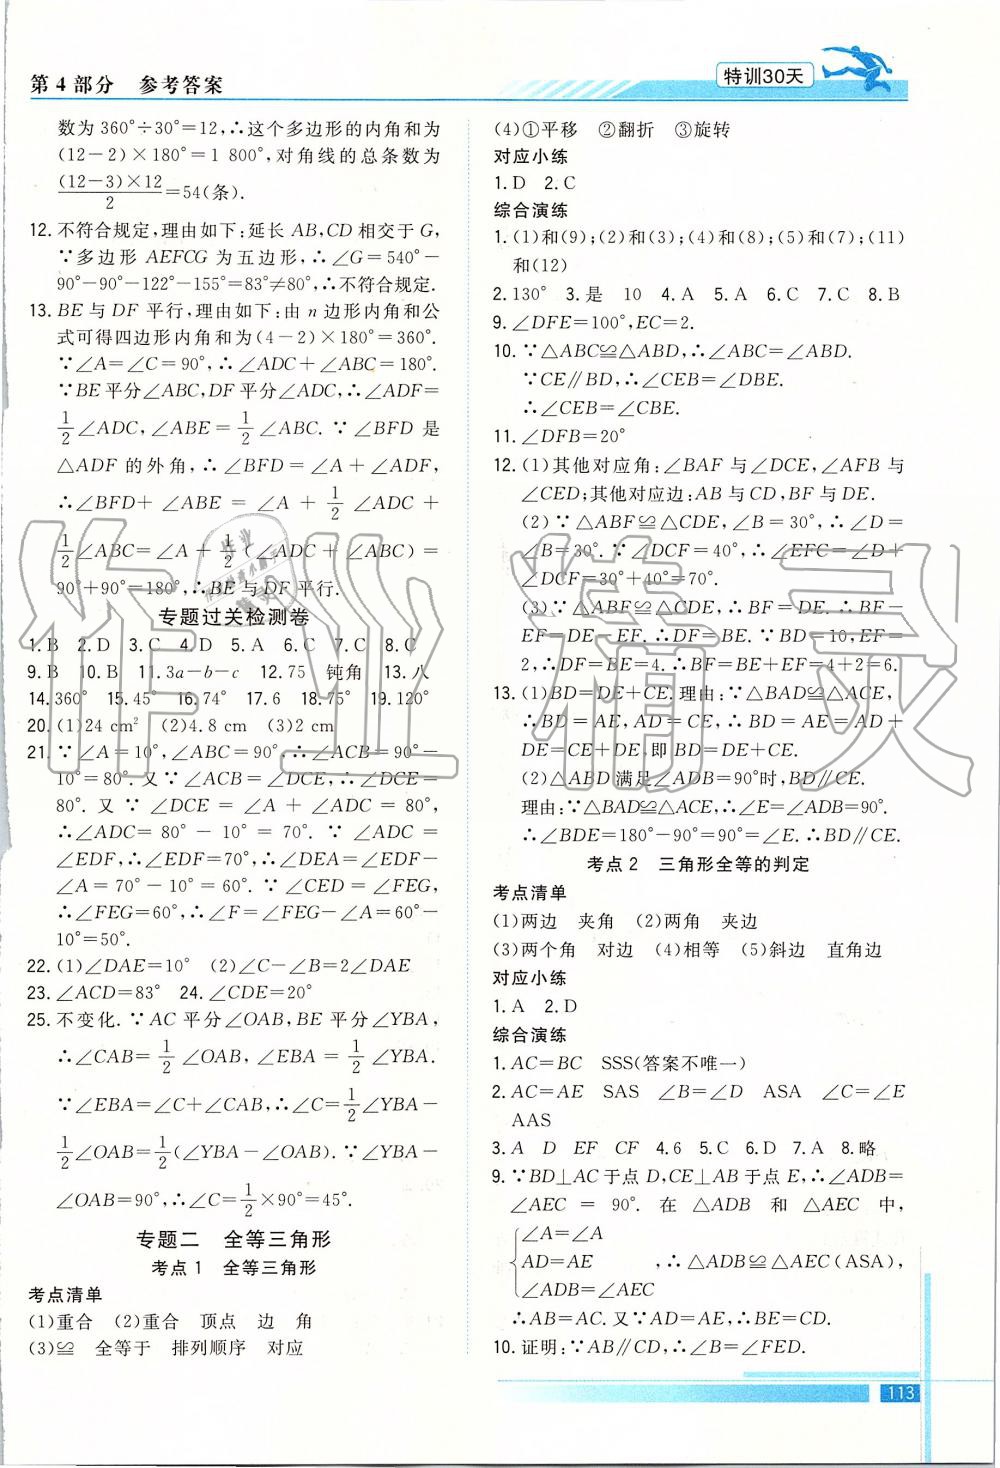 第4部分 参考答案
特训30天
数为360°÷30°=12,∴这个多边形的内角和为
(12-2)×180°=1 800°,对角线的总条数为
(12-3)×12/2=54(条).
12. 不符合规定,理由如下:延长AB,CD相交于G,
∵多边形AEFCG为五边形,∴∠G=540°-
90°-90°-122°-155°=83°≠80°,∴不符合规定.
13. BE与DF平行,理由如下:由n边形内角和公
式可得四边形内角和为(4-2)×180°=360°.
∵∠A=∠C=90°,∴∠ADC+∠ABC=180°.
∵BE平分∠ABC,DF平分∠ADC,∴∠ADF=
1/2∠ADC,∠ABE=1/2∠ABC. ∵∠BFD是
△ADF的外角,∴∠BFD=∠A+∠ADF,
∴∠BFD+∠ABE=∠A+1/2∠ADC+
1/2∠ABC=∠A+1/2(∠ADC+∠ABC)=
90°+90°=180°,∴BE与DF平行.
专题过关检测卷
1. B 2. D 3. C 4. D 5. A 6. C 7. C 8. C
9. B 10. B 11. 3a-b-c 12. 75 钝角 13. 八
14. 360° 15. 45° 16. 74° 17. 6 18. 75° 19. 120°
20. (1)24 cm² (2)4.8 cm (3)2 cm
21. ∵∠A=10°,∠ABC=90°,∴∠ACB=90°-
10°=80°. 又∵∠ACB=∠DCE,∴∠DCE=
80°. 又∵∠DCE=∠A+∠ADC=80°,
∴∠ADC=80°-10°=70°. ∵∠ADC=
∠EDF,∴∠EDF=70°,∴∠DEA=∠EDF-
∠A=70°-10°=60°. ∵∠CED=∠FEG,
∴∠FEG=60°,∴∠F=∠FEG-∠A=60°-
10°=50°.
22. (1)∠DAE=10° (2)∠C-∠B=2∠DAE
23. ∠ACD=83° 24. ∠CDE=20°
25. 不变化. ∵AC平分∠OAB,BE平分∠YBA,
∴∠CAB=1/2∠OAB,∠EBA=1/2∠YBA.
∵∠EBA=∠C+∠CAB,∴∠C=1/2∠YBA-
1/2∠OAB=1/2(∠YBA-∠OAB). ∵∠YBA-
∠OAB=90°,∴∠C=1/2×90°=45°.
专题二 全等三角形
考点1 全等三角形
考点清单
(1)重合 (2)重合 顶点 边 角
(3)≌ 全等于 排列顺序 对应
(4)①平移 ②翻折 ③旋转
对应小练
1. D 2. C
综合演练
1. (1)和(9);(2)和(3);(4)和(8);(5)和(7);(11)
和(12)
2. 130° 3. 是 10 4. A 5. A 6. C 7. C 8. B
9. ∠DFE=100°,EC=2.
10. ∵△ABC≌△ABD,∴∠ABC=∠ABD.
∵CE∥BD,∴∠CEB=∠DBE.
∴∠CEB=∠CBE.
11. ∠DFB=20°
12. (1)其他对应角:∠BAF与∠DCE,∠AFB与
∠CED;其他对应边:AB与CD,BF与DE.
(2)∵△ABF≌△CDE,∠B=30°,∴∠D=
∠B=30°. ∵∠DCF=40°,∴∠EFC=∠D+
∠DCF=30°+40°=70°.
(3)∵△ABF≌△CDE,∴BF=DE. ∴BF-
EF=DE-EF. ∴BE=DF. ∵BD=10,EF=
2,∴DF=BE=4. ∴BF=BE+EF=4+2=6.
13. (1)BD=DE+CE. 理由:∵△BAD≌△ACE,
∴BD=AE,AD=CE,∴BD=AE=AD+
DE=CE+DE,即BD=DE+CE.
(2)△ABD满足∠ADB=90°时,BD∥CE.
理由:∵△BAD≌△ACE,∴∠E=∠ADB=90°.
∴∠BDE=180°-90°=90°=∠E. ∴BD∥CE.
考点2 三角形全等的判定
考点清单
(1)两边 夹角 (2)两角 夹边
(3)两个角 对边 (4)相等 (5)斜边 直角边
对应小练
1. A 2. D
综合演练
1. AC=BC SSS(答案不唯一)
2. AC=AE SAS ∠B=∠D ASA ∠C=∠E
AAS
3. A D EF CF 4. 6 5. C 6. D 7. A 8. 略
9. ∵BD⊥AC于点D,CE⊥AB于点E,∴∠ADB=
∠AEC=90°. 在△ADB和△AEC中,
∠A=∠A
AD=AE ,∴△ADB≌△AEC(ASA),
∠ADB=∠AEC
∴AB=AC. 又∵AD=AE,∴BE=CD.
10. 证明:∵AB∥CF,∴∠B=∠FED.
113
作业精灵